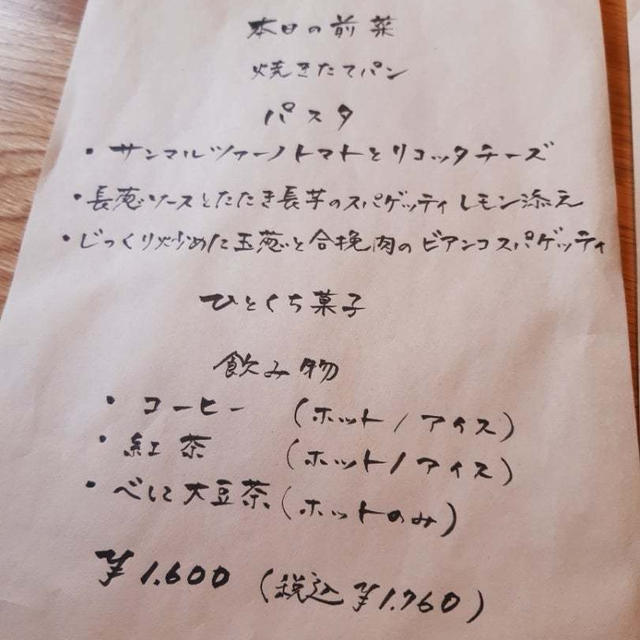 本日の前菜
焼きたてパン
パスタ
・サンマルツァーノトマトとリコッタチーズ
・長葱ソースとたたき長芋のスパゲッティ レモン添え
・じっくり炒めた玉葱と合挽肉のビアンコスパゲッティ
ひとくち菓子
飲み物
・コーヒー (ホット/アイス)
・紅茶 (ホット/アイス)
・べにと大豆茶(ホットのみ)
¥1.600 (税込¥1.760)